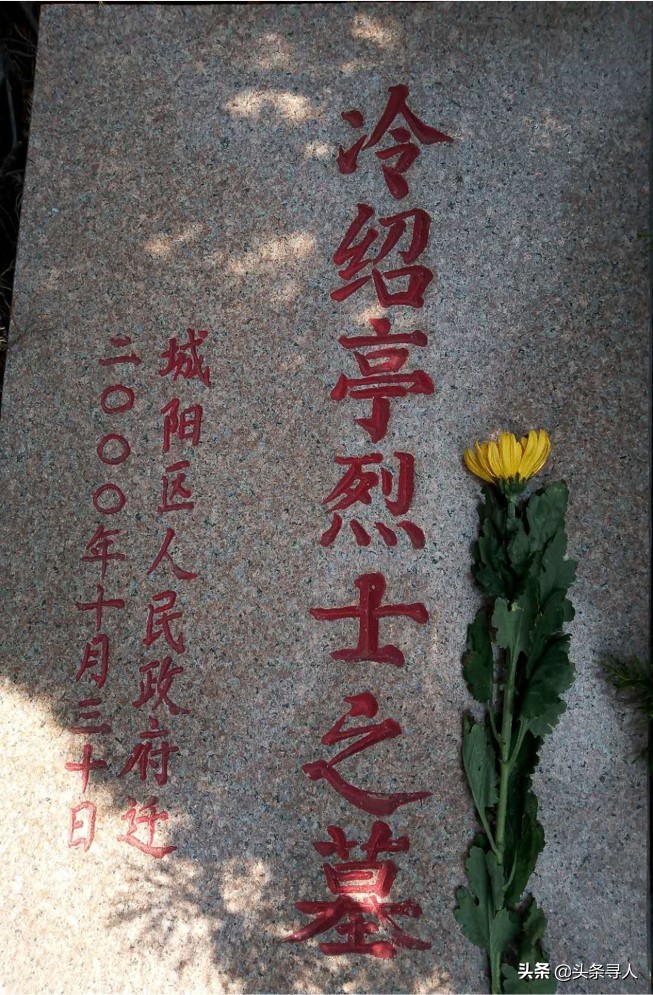 冷绍亭烈士之墓
城阳区人民政府迁
二〇〇〇年十月三十日
头条 @头条寻人